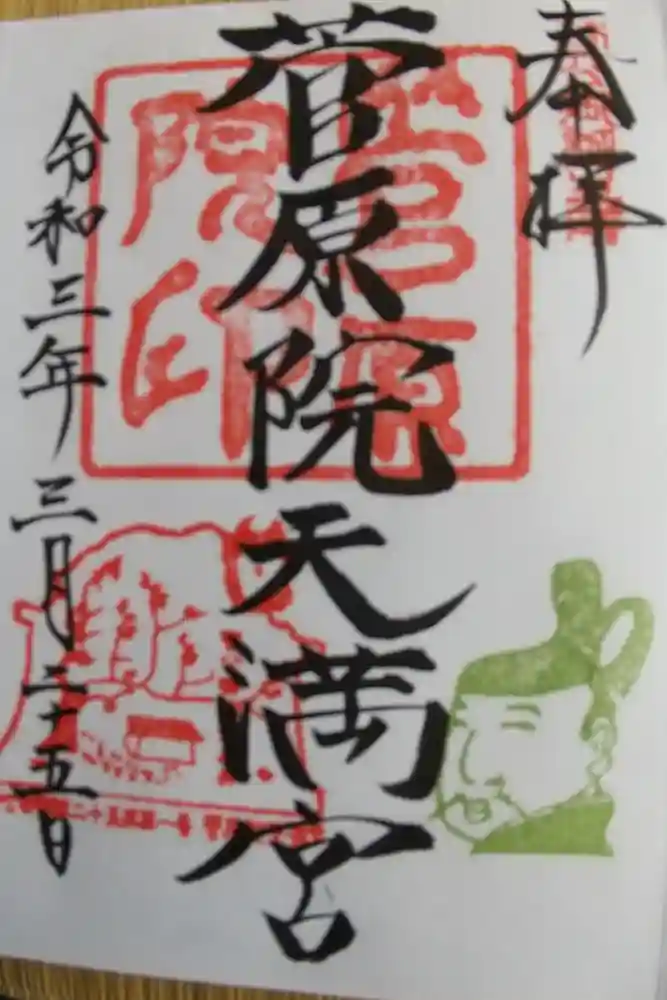 奉拝
菅原院天満宮
菅原院印
令和三年三月二十五日